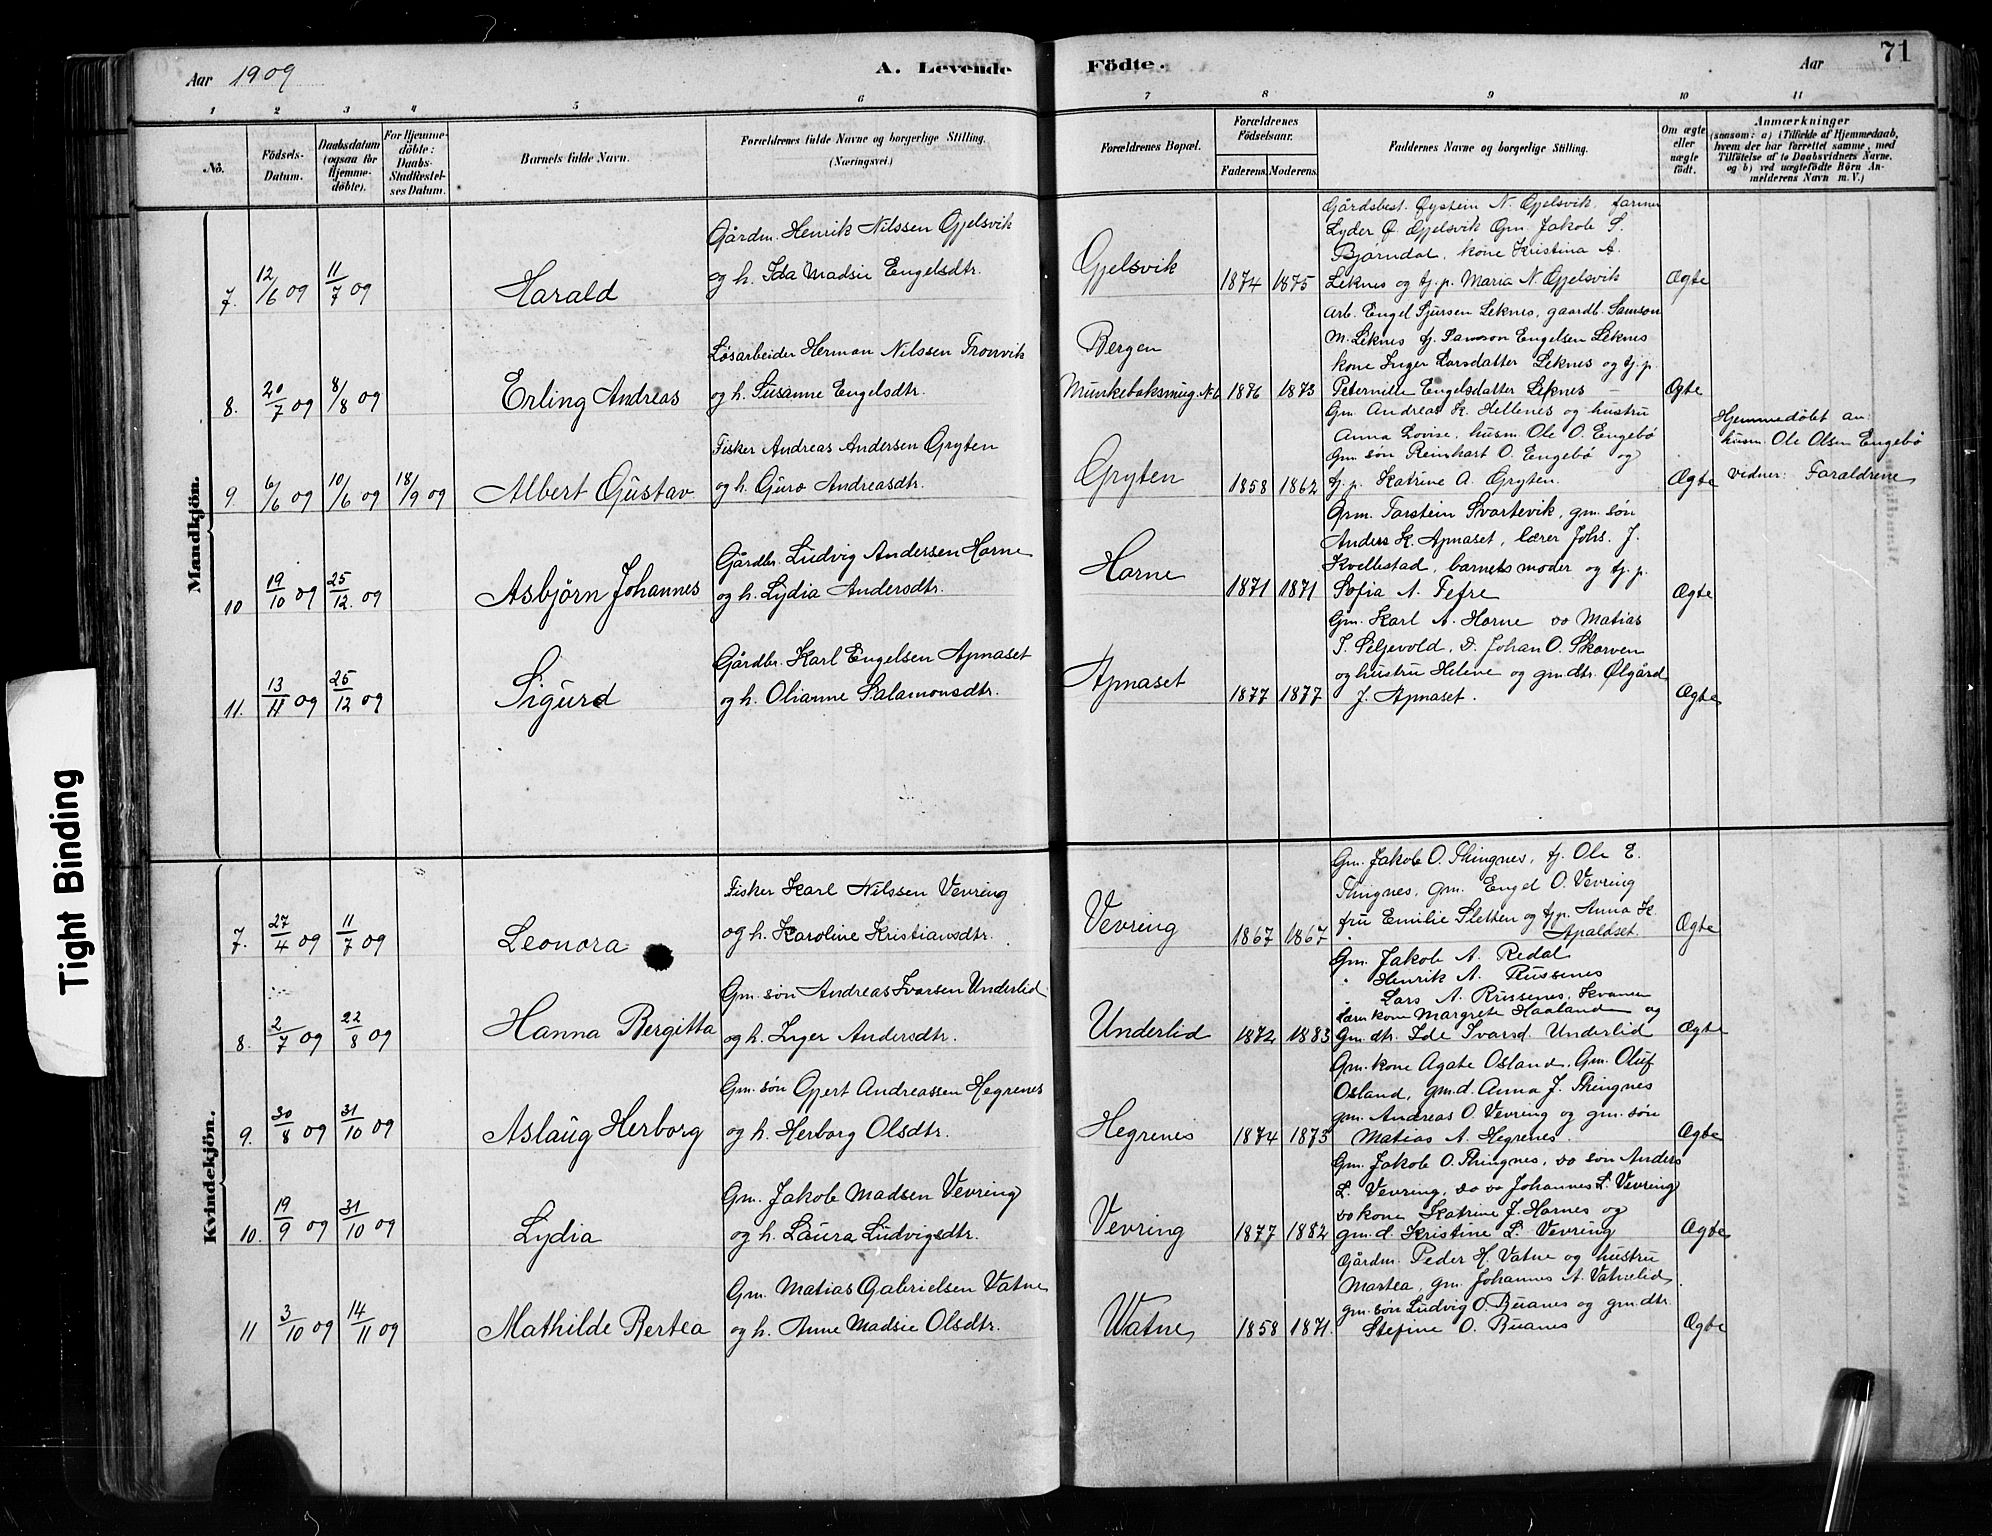 Aar 1909
A. Levende
Födte.
Aar
71
1 2 3 4 5 6 7 8 9 10 11
No.
Födsels-
Datum.
Daabsdatum
(ogsaa for
Hjemme-
döbte).
For Hjemme-
döbte:
Daabs-
Stadfæstel-
ses Datum.
Barnets fulde Navn.
Forældrenes fulde Navne og borgerlige Stilling.
(Næringsvei.)
Forældrenes Bopæl.
Forældrenes
Födselsaar.
Faderens. Moderens.
Faddernes Navne og borgerlige Stilling.
Om ægte
eller
uægte
födt.
Anmærkninger
(saasom: a) i Tilfælde af Hjemmedaab,
hvem der har forrettet samme, med
Tilföielse af to Daabsvidners Navne,
og b) ved uægtefödte Börn An-
melderens Navn m. V.)
Mandkjön.
7. 12/6 09 11/7 09 Harald
Gårdm. Henrik Nilssen Gjelsvik
og h. Ida Madsie Engelsdtr.
Gjelsvik 1874 1875
Gårdsbest. Øystein N. Gjelsvik, farmor
Lyder Ø. Gjelsvik Gm. Jakob S.
Bjørndal, kone Kristina A.
Leknes og tj. p. Maria N. Gjelsvik
Ægte
8. 20/7 09 8/8 09 Erling Andreas
Løsarbeider Herman Nilssen Tronvik
og h. Susanne Engelsdtr.
Bergen
Munkebaksmug. N6 1876 1873
Arb. Engel Sjursen Leknes, gaardb. Samson
M. Leknes tj. Samson Engelsen Leknes
kone Inger Larsdatter Leknes og tj. p.
Petervilie Engelsdatter Leknes
Ægte
9 6/6 09 10/6 09 18/9 09 Albert Gustav
Fisker Andreas Andersen Gryten
og h. Guro Andreasdtr.
Gryten 1858 1862
Gm. Andreas K. Hellenes og hustru
Anna Lovise, husm. Ole O. Engebø
Gm søn Reinhart O. Engebø og
tj. p. Katrine A. Gryten.
Ægte
Hjemmedøbt av
husm. Ole Olsen Engebø
vidner: Foraldrene
10 19/10 09 25/12. 09 Asbjörn Johannes
Gårdbr. Ludvig Andersen Horne
og h. Lydia Andersdtr.
Horne 1871 1871
Grm. Torstein Svartevik, gm. søn
Anders K. Apnaset, lærer Johs. J.
Kvellestad, barnets moder og tj. p.
Sofia A. Tefre
Ægte
11. 13/11 09 25/12 09 Sigurd
Gårdbr. Karl Engelsen Apnaset
og h. Olianne Salamonsdtr.
Apnaset 1877 1877
Gm. Karl A. Horne do Matias
T. Seljevold, D. Johan O. Skorven
og hustru Helene og gm. dtr. Ølgård
J. Apnaset.
Ægte
Kvindekjön.
7. 27/4 09 11/7 09 Leonora
Fisker Karl Nilssen Vevring
og h. Karoline Kristiansdtr.
Vevring 1867 1867
Gm. Jakob O. Thingnes, tj. Ole E.
Thingnes, gm. Engel O. Vevring
fru Emilie Sletten og tj. p. Anna K.
Apaldset.
Ægte
8. 2/7 09 22/8 09 Hanna Bergitta
Gm. søn Andreas Ivarsen Underlid
og h. Inger Andersdtr.
Underlid 1872 1883
Gm. Jakob A. Redal
" Henrik A. Russenes
" Lars A. Russenes, Kvamen
kone Margrete Haaland og
Gm. dtr. Ide Ivarsd. Underlid
Ægte
9. 30/8 09 31/10 09 Aslaug Herborg
Gm. søn Gjert Andreassen Hegrenes
og h. Herborg Olsdtr.
Hegrenes 1874 1875
Gm. kone Agate Osland, Gm. Oluf
Osland, gm. d. Anna J. Thingnes
gm. Andreas O. Vevring og gm. søn
Matias A. Hegrenes.
Ægte
10. 19/9 09 31/10 09 Lydia
Gm. Jakob Madsen Vevring
og h. Laura Ludvigsdtr.
Vevring 1877 1882
Gm. Jakob O. Thingnes, do søn Anders
L. Vevring, do do Johannes L. Vevring
do kone Katrine J. Hornes og
gm. d. Kristine L. Vevring
Ægte
11 3/10 09 14/11 09 Mathilde Bertea
Gm. Matias Gabrielsen Vatne
og h. Anne Madsie Olsdtr.
Watne 1858 1871.
Gårdm. Peder H. Vatne og hustru
Martea, gm. Johannes A. Vatnelid
gm. søn Ludvig O. Buanes og gm. dtr.
Stefine O. Buanes
Ægte
Tight Binding